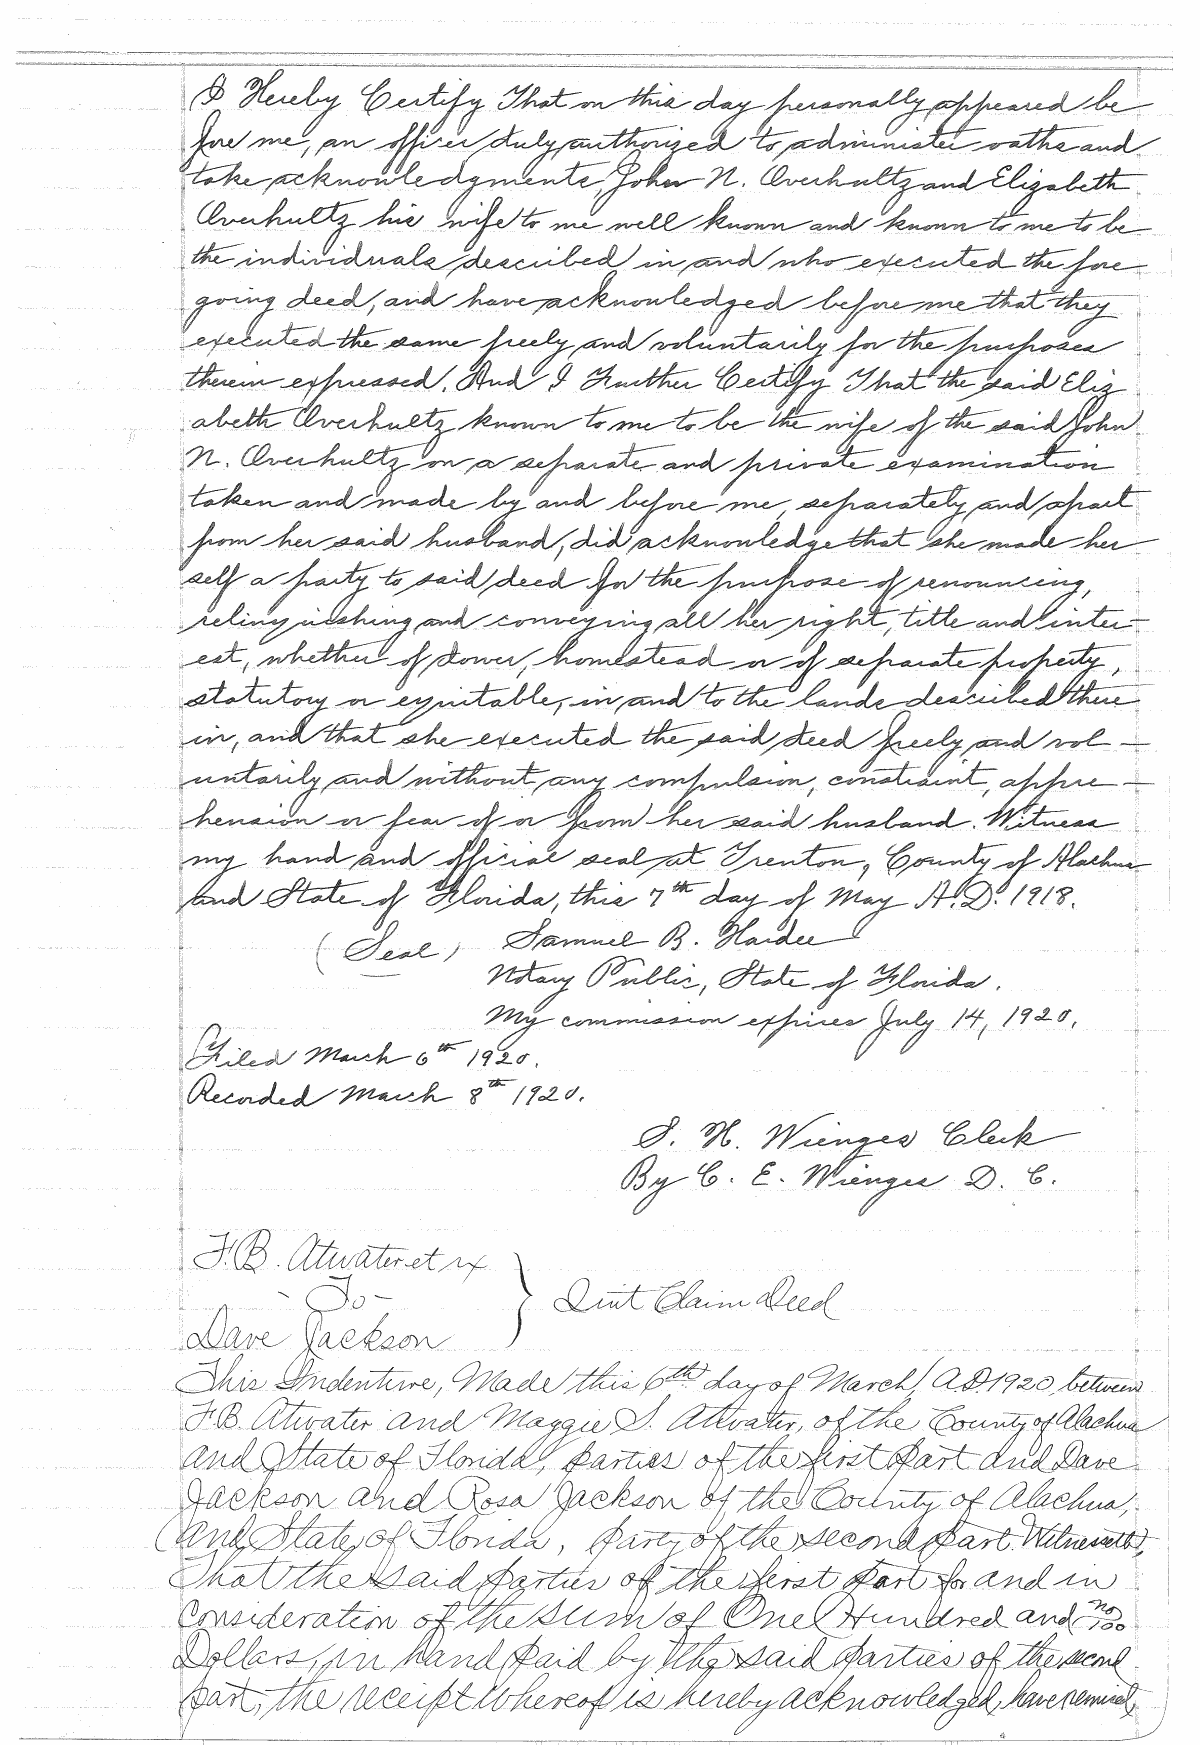 I Hereby Certify That on this day personally appeared be
fore me, an officer duly authorized to administer oaths and
take acknowledgments, John N. Overhultz and Elizabeth
Overhultz his wife to me well known and known to me to be
the individuals described in and who executed the fore
going deed, and have acknowledged before me that they
executed the same freely and voluntarily for the purposes
therein expressed. And I Further Certify That the said Eliz
abeth Overhultz known to me to be the wife of the said John
N. Overhultz on a separate and private examination
taken and made by and before me, separately and apart
from her said husband, did acknowledge that she made her
self a party to said deed for the purpose of renouncing,
relinquishing and conveying all her right, title and inter-
est, whether of dower, homestead or of separate property,
statutory or equitable, in and to the lands described there
in, and that she executed the said deed freely and vol-
untarily and without any compulsion, constraint, appre-
hension or fear of or from her said husband. Witness
my hand and official seal at Trenton, County of Alachua
and State of Florida, this 7th day of May A.D. 1918.
(Seal) Samuel B. Hardee
Notary Public, State of Florida.
My commission expires July 14, 1920.
Filed March 6th 1920.
Recorded March 8th 1920.
S. H. Wienges Clerk
By C. E. Wienges D. C.
F.B. Atwater et ux
- To -
} Quit Claim Deed
Dave Jackson
This Indenture, Made this 6th day of March, A.D. 1920 between
F.B. Atwater and Maggie S. Atwater, of the County of Alachua
and State of Florida, parties of the first part and Dave
Jackson and Rosa Jackson of the County of Alachua,
and State of Florida, party of the second part. Witnesseth,
That the said parties of the first part for and in
consideration of the sum of One Hundred and no/100
Dollars, in hand paid by the said parties of the second
part, the receipt whereof is hereby acknowledged, have remised,